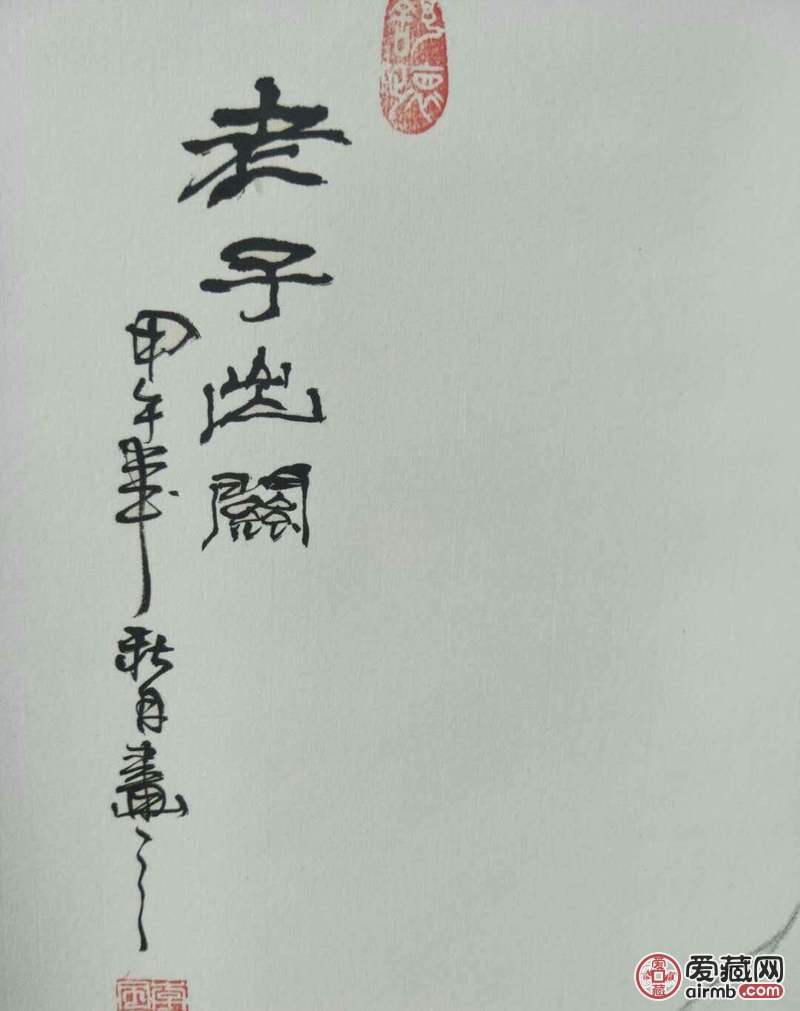 舒懷
老子出關
甲午歲秋月畫之
爱藏网
airmb.com